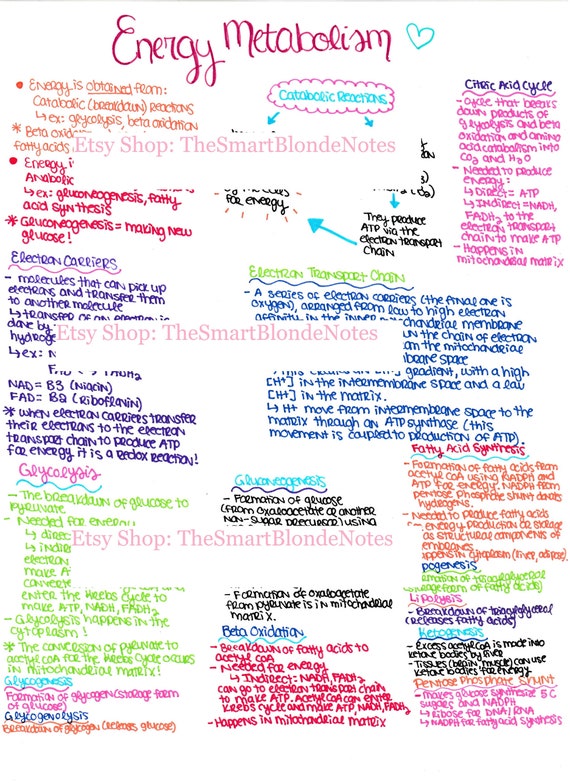 Energy Metabolism
• Energy is obtained from:
Catabolic (breakdown) reactions
↳ ex: glycolysis, beta oxidation
* Beta oxid
fatty acids
• Energy i
Anabolic
↳ ex: gluconeogenesis, fatty
acid synthesis
* Gluconeogenesis = making new
glucose!
Catabolic Reactions
for energy
They produce
ATP via the
electron transport
chain
Citric Acid Cycle
- Cycle that breaks
down products of
glycolysis and beta
oxidation and amino
acid catabolism into
CO2 and H2O
- Needed to produce
energy:
↳ Direct = ATP
↳ Indirect = NADH,
FADH2 to the
electron transport
chain to make ATP
- Happens in
mitochondrial matrix
Etsy Shop: TheSmartBlondeNotes
Electron Carriers
- molecules that can pick up
electrons and transfer them
to another molecule
↳ transfer of an electron is
done by
hydroge
↳ ex: N
FAD → FADH2
NAD = B3 (Niacin)
FAD = B2 (Riboflavin)
* when electron carriers transfer
their electrons to the electron
transport chain to produce ATP
for energy, it is a redox reaction!
Electron Transport Chain
- A series of electron carriers (the final one is
oxygen), arranged from low to high electron
affinity in the inner
chondrial membrane
un the chain of electron
om the mitochondrial
mbrane space
gradient, with a high
[H+] in the intermembrane space and a low
[H+] in the matrix.
↳ H+ move from intermembrane space to the
matrix through an ATP synthase (this
movement is coupled to production of ATP).
Etsy Shop: TheSmartBlondeNotes
Glycolysis
- The breakdown of glucose to
pyruvate
- Needed for energy
↳ direc
↳ indire
electron
make A
converte
enter the Krebs cycle to
make ATP, NADH, FADH2
- Glycolysis happens in the
cytoplasm!
* The conversion of pyruvate to
acetyl coA for the Krebs Cycle occurs
in mitochondrial matrix!
Glycogenesis
Formation of glycogen (storage form
of glucose)
Glycogenolysis
Breakdown of glycogen (releases glucose)
Gluconeogenesis
- Formation of glucose
(from oxaloacetate or another
non-sugar precursor) using
- Formation of oxaloacetate
from pyruvate is in mitochondrial
matrix.
Beta Oxidation
- Breakdown of fatty acids to
acetyl coA
- Needed for energy
↳ Indirect: NADH, FADH2
can go to electron transport chain
to make ATP. Acetyl coA can enter
Krebs cycle and make ATP, NADH, FADH2
- Happens in mitochondrial matrix
Etsy Shop: TheSmartBlondeNotes
Fatty Acid Synthesis
- Formation of fatty acids from
acetyl coA using NADPH and
ATP for energy. NADPH from
pentose phosphate shunt donates
hydrogens.
- Needed to produce fatty acids
energy production or storage
as structural components of
embranes
appens in cytoplasm (liver, adipose)
pogenesis
ormation of triacylglycerol
Lipolysis
- Breakdown of triacylglycerol
(releases fatty acids)
Ketogenesis
- Excess acetyl coA is made into
ketone bodies by liver
- Tissues (brain, muscle) can use
ketone bodies for energy
Pentose Phosphate Shunt
- makes glucose synthesize 5 C
sugars and NADPH
↳ Ribose for DNA/RNA
↳ NADPH for fatty acid synthesis